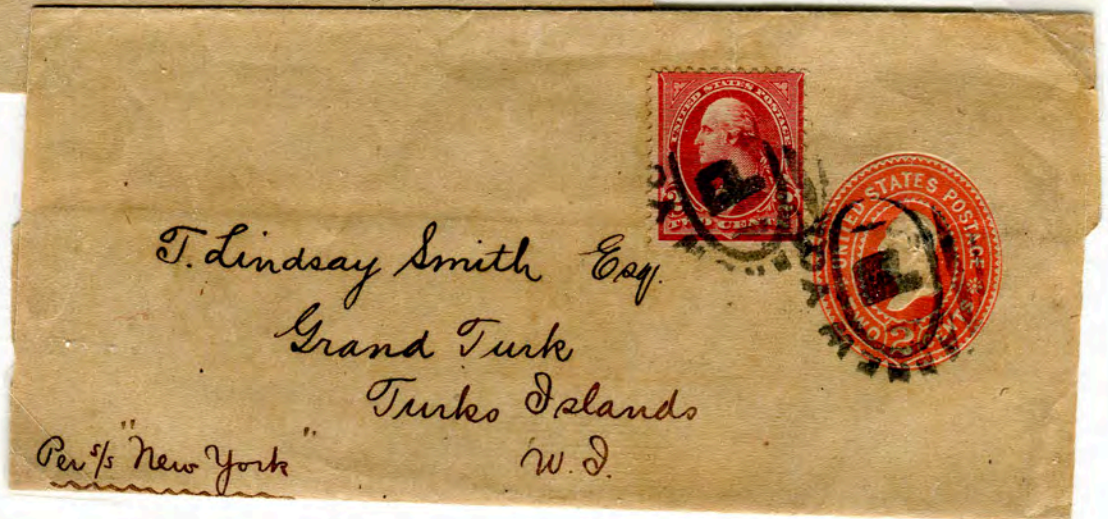 UNITED STATES POSTAGE
2 2
TWO CENTS
UNITED STATES POSTAGE
TWO CENTS
2
P
P
NEW YORK
T. Lindsay Smith Esq.
Grand Turk
Turks Islands
W. I.
Per s/s "New York"